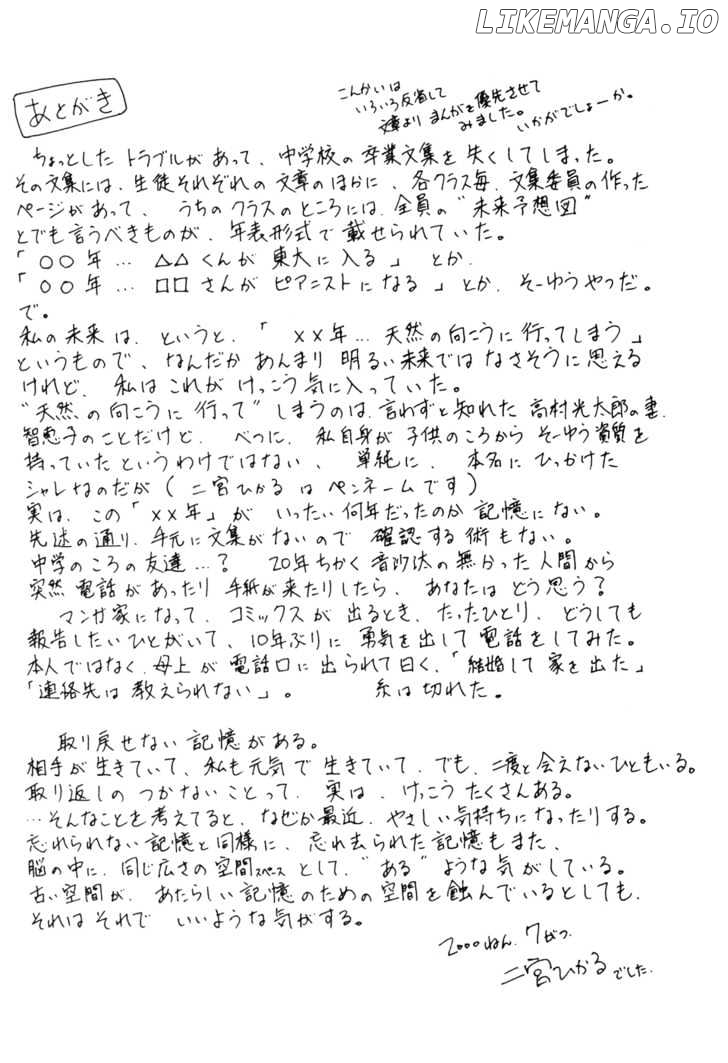 LIKEMANGA.IO
あとがき
こんかいは
いろいろ反省して
文章より まんがを優先させて
みました。
いかがでしょーか。
ちょっとしたトラブルがあって、中学校の卒業文集を失くしてしまった。
その文集には、生徒それぞれの文章のほかに、各クラス毎、文集委員の作った
ページがあって、うちのクラスのところには、全員の“未来予想図”
とでも言うべきものが、年表形式で載せられていた。
「○○年… △△くんが東大に入る」とか、
「○○年… □□さんがピアニストになる」とか、そーゆうやつだ。
で。
私の未来は、というと、「××年…天然の向こうに行ってしまう」
というもので、なんだかあんまり明るい未来ではなさそうに思える
けれど、私はこれがけっこう気に入っていた。
“天然の向こうに行って”しまうのは、言わずと知れた高村光太郎の妻、
智恵子のことだけど、べつに、私自身が子供のころからそーゆう資質を
持っていたというわけではない、単純に、本名にひっかけた
シャレなのだが(二宮ひかるはペンネームです)
実は、この「××年」がいったい何年だったのか記憶にない。
先述の通り、手元に文集がないので確認する術もない。
中学のころの友達…? 20年ちかく音沙汰の無かった人間から
突然電話があったり手紙が来たりしたら、あなたはどう思う?
マンガ家になって、コミックスが出るとき、たったひとり、どうしても
報告したいひとがいて、10年ぶりに勇気を出して電話をしてみた。
本人ではなく、母上が電話口に出られて曰く、「結婚して家を出た」
「連絡先は教えられない」。 糸は切れた。
取り戻せない記憶がある。
相手が生きていて、私も元気で生きていて、でも、二度と会えないひともいる。
取り返しのつかないことって、実は、けっこうたくさんある。
…そんなことを考えてると、なぜか最近、やさしい気持ちになったりする。
忘れられない記憶と同様に、忘れ去られた記憶もまた、
脳の中に、同じ広さの空間スペースとして、“ある”ような気がしている。
古い空間が、あたらしい記憶のための空間を蝕んでいるとしても、
それはそれでいいような気がする。
2000ねん.7がつ.
二宮ひかるでした.